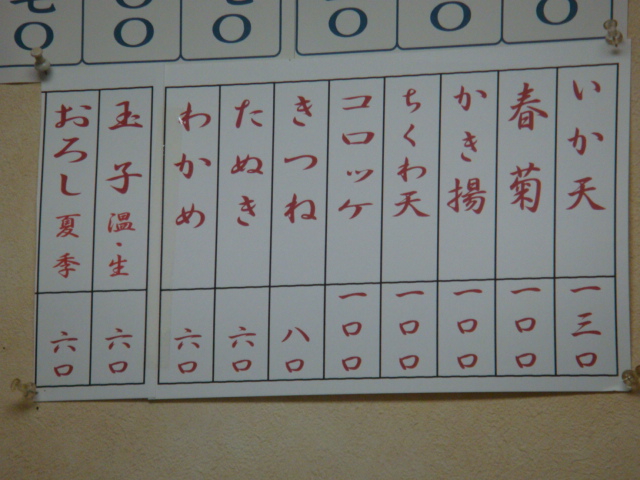 いか天 一三〇
春菊 一〇〇
かき揚 一〇〇
ちくわ天 一〇〇
コロッケ 一〇〇
きつね 八〇
たぬき 六〇
わかめ 六〇
玉子 温・生 六〇
おろし 夏季 六〇